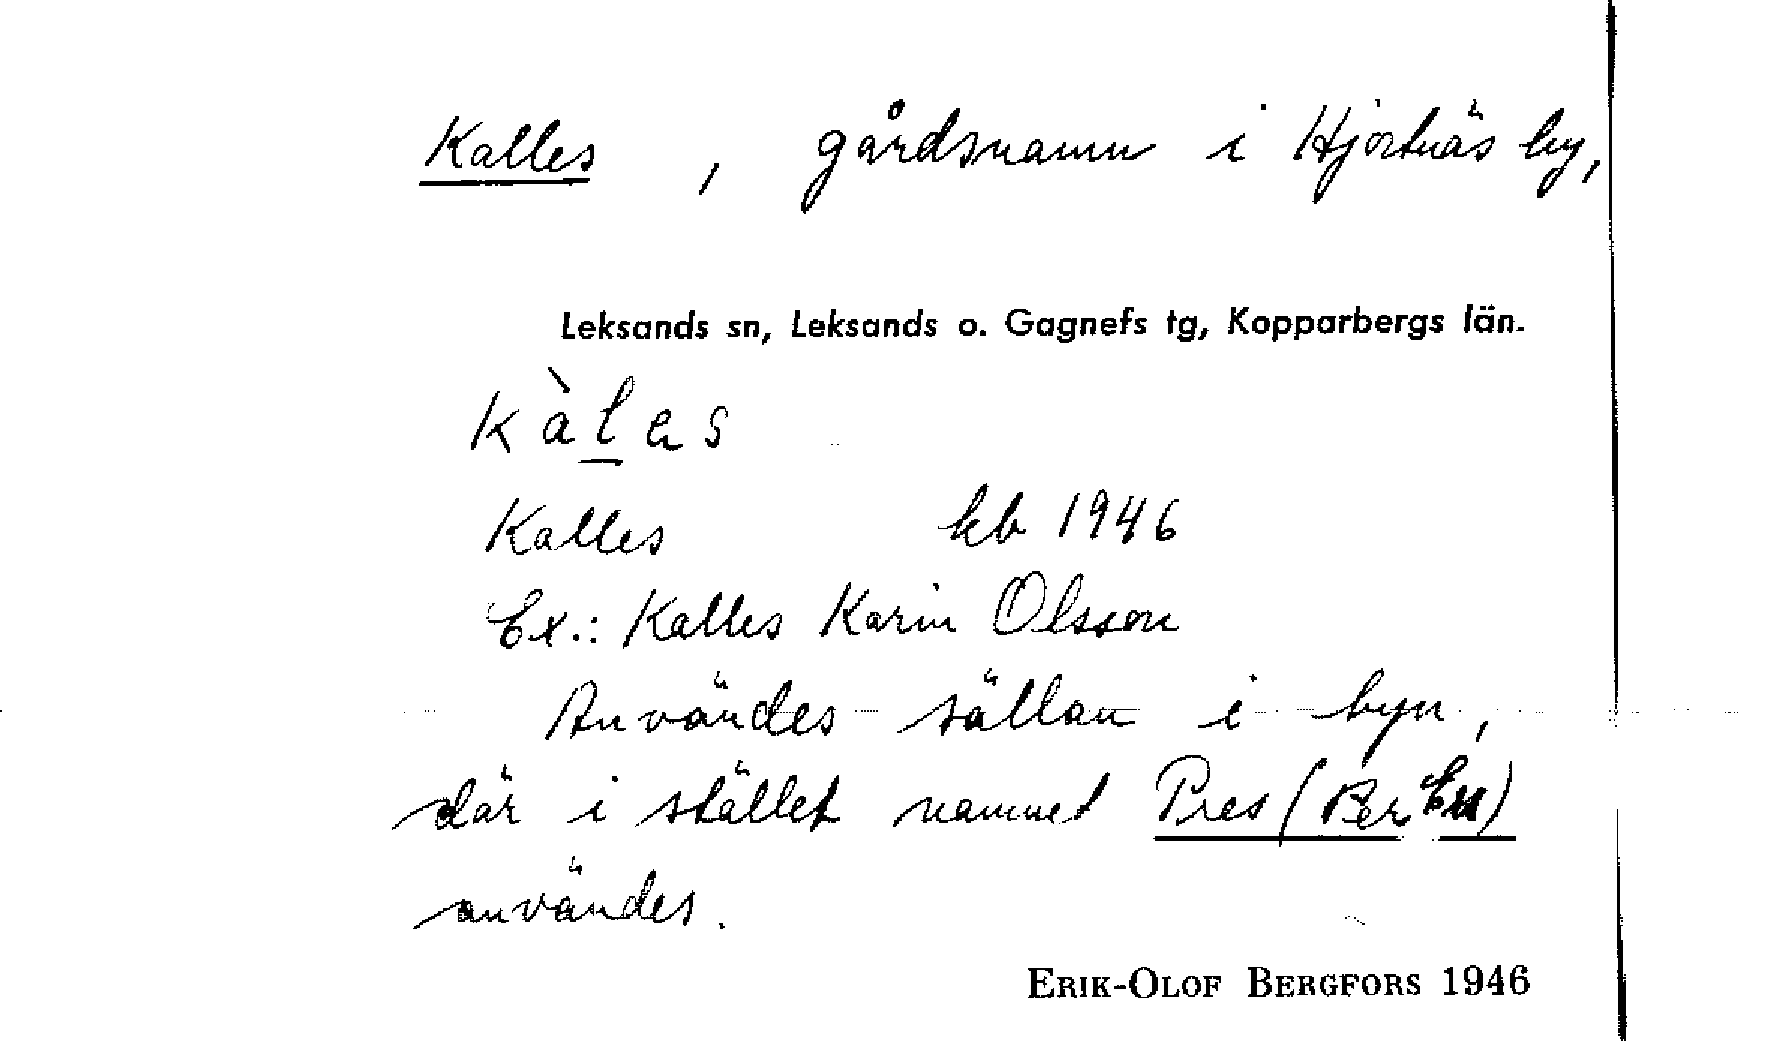 Kalles , gårdsnamn i Hjortnäs by,
Leksands sn, Leksands o. Gagnefs tg, Kopparbergs län.
kàles
Kalles kb 1946
Ex.: Kalles Karin Olsson
Användes sällan i byn,
där i stället namnet Pres (Ber
användes.
ERIK-OLOF BERGFORS 1946